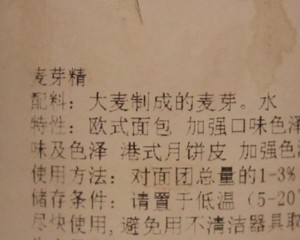 麦芽精
配料： 大麦制成的麦芽。水
特性： 欧式面包 加强口味色泽
味及色泽 港式月饼皮 加强色
使用方法： 对面团总量的1-3%
储存条件： 请置于低温（5-20
尽快使用,避免用不清洁器具取